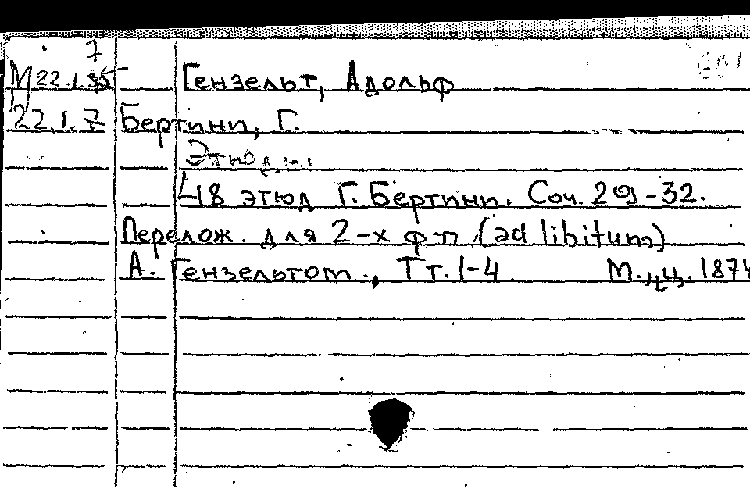 7
М22.1.35 Гензельт, Адольф
22.1.7 Бертини, Г.
Этюды
48 этюд Г. Бертини. Соч. 29-32.
Перелож. для 2-х ф-п (ad libitum)
А. Гензельтом., Тт. 1-4 М., ц. 1874